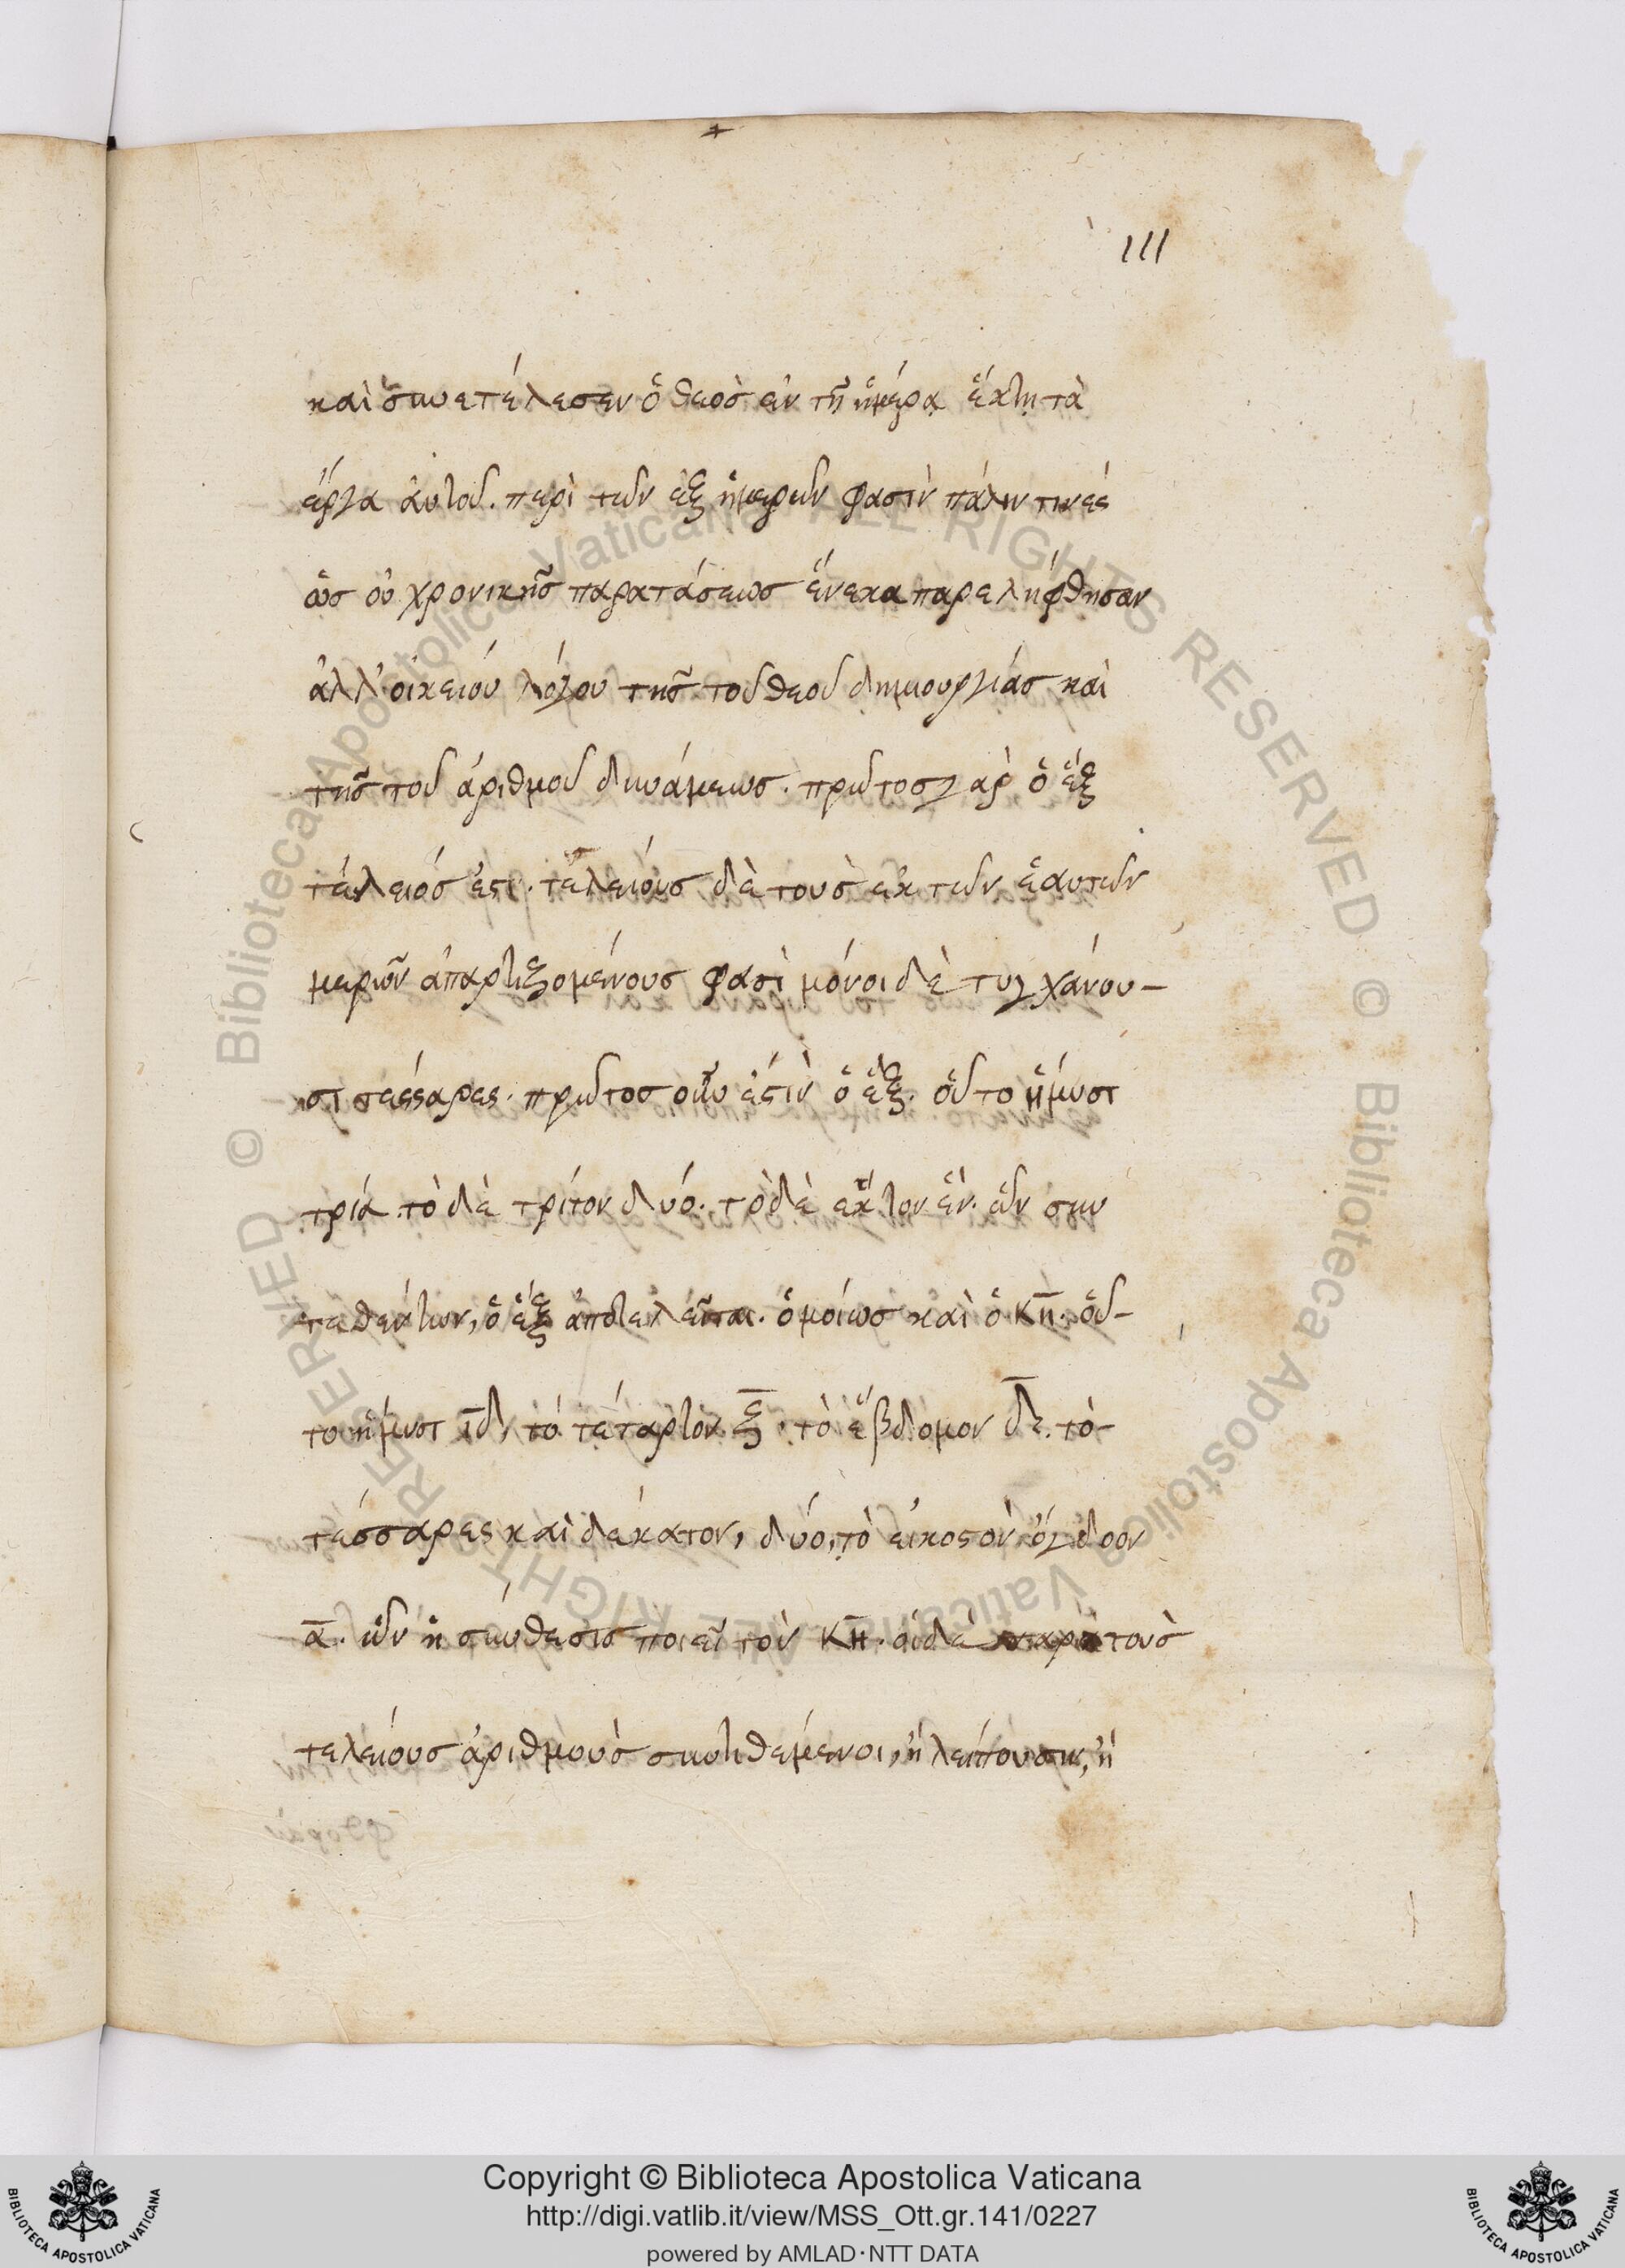 111
καὶ συνετέλεσεν ὁ θεὸς ἐν τῆ ἡμέρᾳ ἕκτῃ τὰ
ἔργα αὐτοῦ. περὶ τῶν ἓξ ἡμερῶν φασὶν πάλιν τινές
ὡς οὐ χρονικῆς παρατάσεως ἕνεκα παρελήφθησαν
ἀλλ' οἰκείου λόγου τῆς τοῦ θεοῦ δημιουργίας καὶ
τῆς τοῦ ἀριθμοῦ δυνάμεως. πρῶτος γὰρ ὁ ἓξ
τέλειός ἐστι. τελείους δὲ τοὺς ἐκ τῶν ἑαυτῶν
μερῶν ἀπαρτιζομένους φασὶ μόνοι δὲ τυγχάνου-
σι τέσσαρες. πρῶτος οὖν ἐστὶν ὁ ἓξ. οὗ τὸ ἥμυσι
τρία τὸ δὲ τρίτον δύο. τὸ δὲ ἕκτον ἕν. ὧν συν
τεθέντων, ὁ ἓξ ἀποτελεῖται. ὁμοίως καὶ ὁ κη. οὗ-
το ἥμυσι ιδ, τὸ τέταρτον ξ. τὸ ἕβδομον δ. τὸ-
τέσσαρες καὶ δέκατον, δύο, τὸ εἰκοστὸν ὄγδοον
α. ὧν ἡ σύνθεσις ποιεῖ τὸν κη. οἱ δὲ παρὰ τοὺς
τελείους ἀριθμοὺς συντιθέμενοι, ἢ λείπουσιν, ἢ
Copyright © Biblioteca Apostolica Vaticana
http://digi.vatlib.it/view/MSS_Ott.gr.141/0227
powered by AMLAD·NTT DATA
BIBLIOTECA APOSTOLICA VATICANA
BIBLIOTECA APOSTOLICA VATICANA
© Biblioteca Apostolica Vaticana ALL RIGHTS RESERVED © Biblioteca Apostolica Vaticana ALL RIGHTS RESERVED